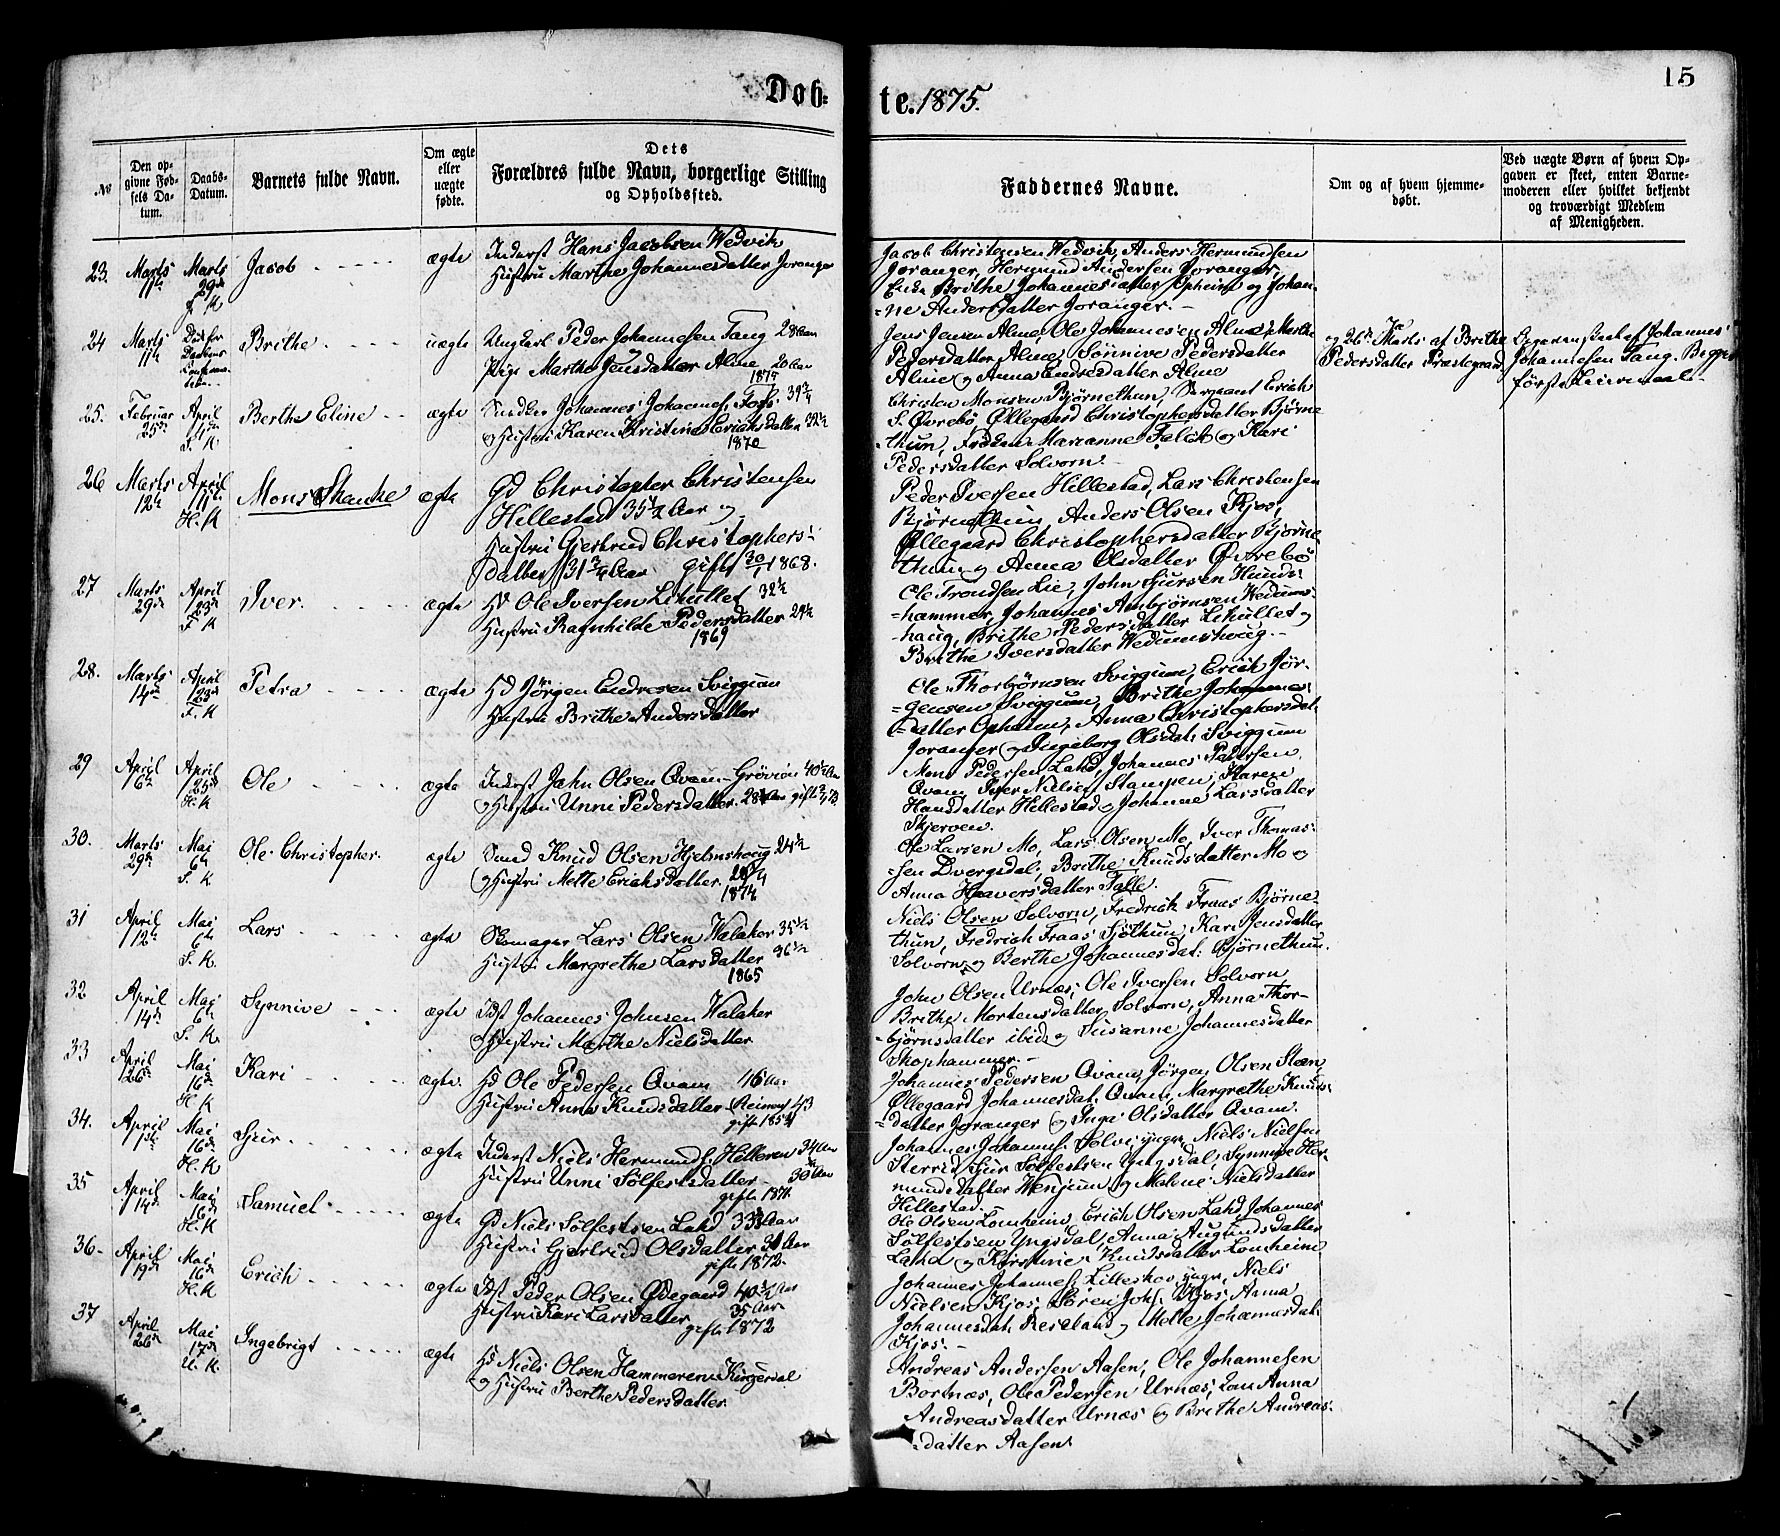 15
Døb-
te. 1875.
No
Den opgivne Fødsels Datum.
Daabs-Datum.
Barnets fulde Navn.
Om ægte eller uægte fødte.
Dets Forældres fulde Navn, borgerlige Stilling og Opholdssted.
Faddernes Navne.
Om og af hvem hjemmedøbt.
Ved uægte Børn af hvem Opgaven er skeet, enten Barnemoderen eller hvilket bekjendt og troværdigt Medlem af Menigheden.
23. Marts 11te Marts 29de J. K Jacob ægte
Inderst Hans Jacobsen Wedvik
Hustru Marthe Johannesdatter Joranger
Jacob Christensen Wedvik, Anders Hermundsen
Joranger, Hermund Andersen Joranger,
Enke Brithe Johannesdatter Opheim og Johan-
=ne Andersdatter Joranger.
24 Marts 11te Brithe uægte
Ungkarl Peder Johannesen Fang 28 Aar
Pige Marthe Jensdatter Alme 20 Aar
Jens Jensen Alme, Ole Johannesen Alme, Marthe
Pedersdatter Alme, Sønnive Pedersdatter
Alme og Anna Endresdatter Alme
og 26de Marts af Brithe
Pedersdatter Præstegaard
Johannes
Johannesen Fang. Begges
første Leiermaal.
25. Februar 25de April S. K Berthe Eline ægte
Johannes Johannes. Foss 39¾ 1875
og Hustru Karen Kristine Erichsdatter 32½
1870
Christen Monsen Bjørnethun, Sergeant Erich
S. Øvrebø, Øllegaard Christophersdatter Bjørne
=thun, Frøken Marianne Falch og Kari
Pedersdatter Solvorn.
26 Marts 12te April 11te H. K Mons Skanke ægte
Gd Christopher Christensen
Hillestad 35½ Aar og
Hustru Gjertrud Christophers-
datter 31¾ Aar. gift 30/1 1868.
Peder Iversen Hillestad, Lars Christensen
Bjørnethun, Anders Olsen Kjos,
Øllegaard Christophersdatter Bjørne
thun og Anna Olsdatter Øvrebø
27 Marts 29de April 23de F. K Iver. ægte
Hd Ole Iversen Lihullet 32½
Hustru Ragnhilde Pedersdatter 29½
1869
Ole Trondsen Lie, John Sjursen Hunds-
=hammer, Johannes Ambjørnsen Wedums-
-haug, Brithe Pedersdatter Lihullet og
Brithe Iversdatter Wedumshoug.
28. Marts 14de April 23de F. K Petra ægte
Hd Jørgen Endresen Sviggum
Hustru Brithe Andersdatter
Ole Thorbjørnsen Sviggum, Erich Jør-
=gensen Sviggum, Brithe Johannes-
=datter Opheim, Anna Christophersdat.
Joranger og Ingeborg Olsdat. Sviggum
29 April 6te April 25de H. K Ole ægte
Inderst John Olsen Qvam-Grøvien 40½ Aar
og Hustru Unni Pedersdatter 28 Aar gift
Mons Pedersen Lahd, Johannes Pedersen
Qvam, Iver Nielsen Stampen, Karen
Hansdatter Hillestad og Johanne Larsdatter
Skjerven.
30. Marts 29de Mai 6te S. K Ole Christopher. ægte
Knud Olsen Hjelmshoug 24½
og Hustru Mette Erichsdatter 20¾
1874
Ole Larsen Mo, Lars Olsen Mo, Iver Thomas-
=sen Dvergsdal, Brithe Knudsdatter Mo og
Anna Haaversdatter Talle.
31 April 12te Mai 6te S. K. Lars ægte
Skomager Lars Olsen Walaker 35½
Hustru Margrethe Larsdatter 36½
1865
Niels Olsen Solvorn, Fredrick Fraas Bjørne-
thun, Fredrich Fraas Sjøthun, Kari Jensdatter
Solvorn og Berthe Johannesdat. Bjørnethun.
32 April 14de Mai 6te S. K. Synnive ægte
Idst Johannes Johnsen Walaker
og Hustru Marthe Nielsdatter
John Olsen Urnæs, Ole Iversen Solvorn
Brithe Mortensdatter Solvorn, Anna Thor-
=bjørnsdatter ibid. og Susanne Johannesdatter
Skophammer.
33 April 26de Mai 16de H. K Kari ægte.
Hd Ole Pedersen Qvam 46 Aar
Hustru Anna Knudsdatter 43
gift 1852
Johannes Pedersen Qvam, Jørgen Olsen Steen,
Øllegaard Johannesdat. Qvam, Margrethe Knuds-
=datter Joranger og Inga Olsdatter Qvam.
34. April 1ste Mai 16de H. K Sjur ægte
Inderst Niels Hermunds. Hilleren 34 Aar
Hustru Unni Sølfestsdatter 30 Aar
gift 1871.
Johannes Johannes. Solvi yngr. Niels Nielsen
Sterri, Sjur Sølfestsen Yngsdal, Synnive Her-
mundsdatter Wenjum og Malene Nielsdatter
Hillestad.
35 April 14de Mai 16de H. K Samuel ægte
Gd Niels Sølfestsen Lahd 33 Aar
Hustru Gjertrud Olsdatter 30 Aar
gift 1872.
Ole Olsen Lomheim, Erich Olsen Lahd, Johannes
Sølfestsen Yngsdal, Anna Augundsdatter
Lahd og Kirstine Knudsdatter Lomheim
36. April 19de Mai 16de H. K Erich ægte
Idst Peder Olsen Ødegaard 40½ Aar
Hustru Kari Larsdatter 35 Aar
gift 1872
Johannes Johannes. Lilleskov yngr., Niels
Nielsen Kjos, Søren Johs. Kjos, Anna
Johannesdat. Reseland og Mette Johannesdat.
Kjos.
37 April 26de Mai 17de U. K. Ingebrigt ægte
Hd Niels Olsen Hammeren Kingerdal
og Hustru Berthe Pedersdatter.
Andreas Andersen Aasen, Ole Johannesen
Bortnæs, Ole Pedersen Urnæs, Anna
Andreasdatter Urnæs og Brithe Andreas-
=datter Aasen.